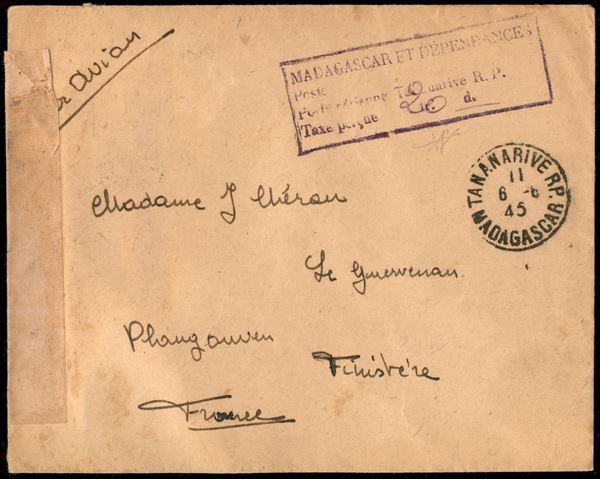 Par Avion
MADAGASCAR ET DÉPENDANCES
Poste
Poste aérienne Tananarive R. P.
Taxe perçue 20 fr. d.
TANANARIVE RP.
11
6 -6
45
MADAGASCAR
Madame J Méron
Le Guervenan
Plougonven
Finistére
France